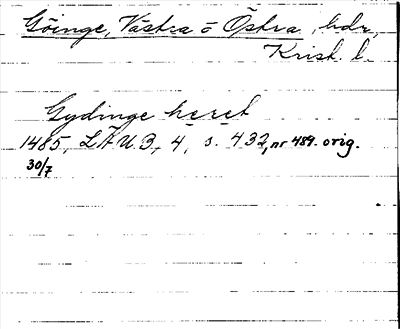 Göinge, Västra o Östra, hdr,
Krist. l.
Gydinge heret
1485, LÄUB, 4, s. 432, nr 489. orig.
30/7